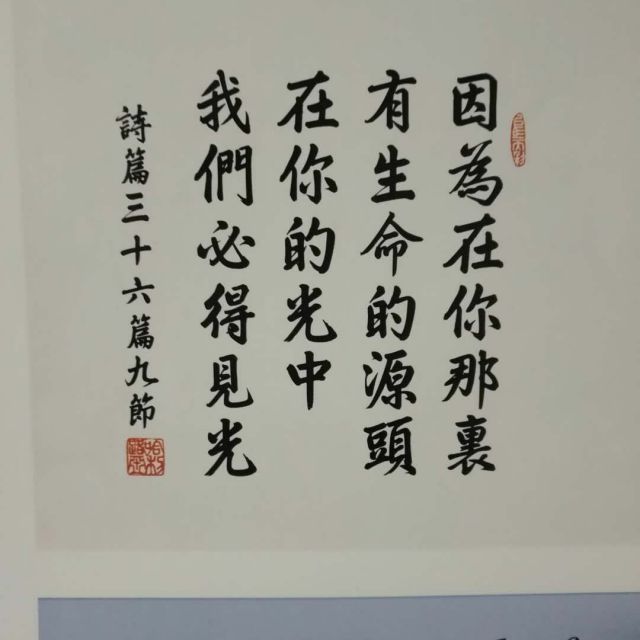 因為在你那裏
有生命的源頭
在你的光中
我們必得見光
詩篇三十六篇九節